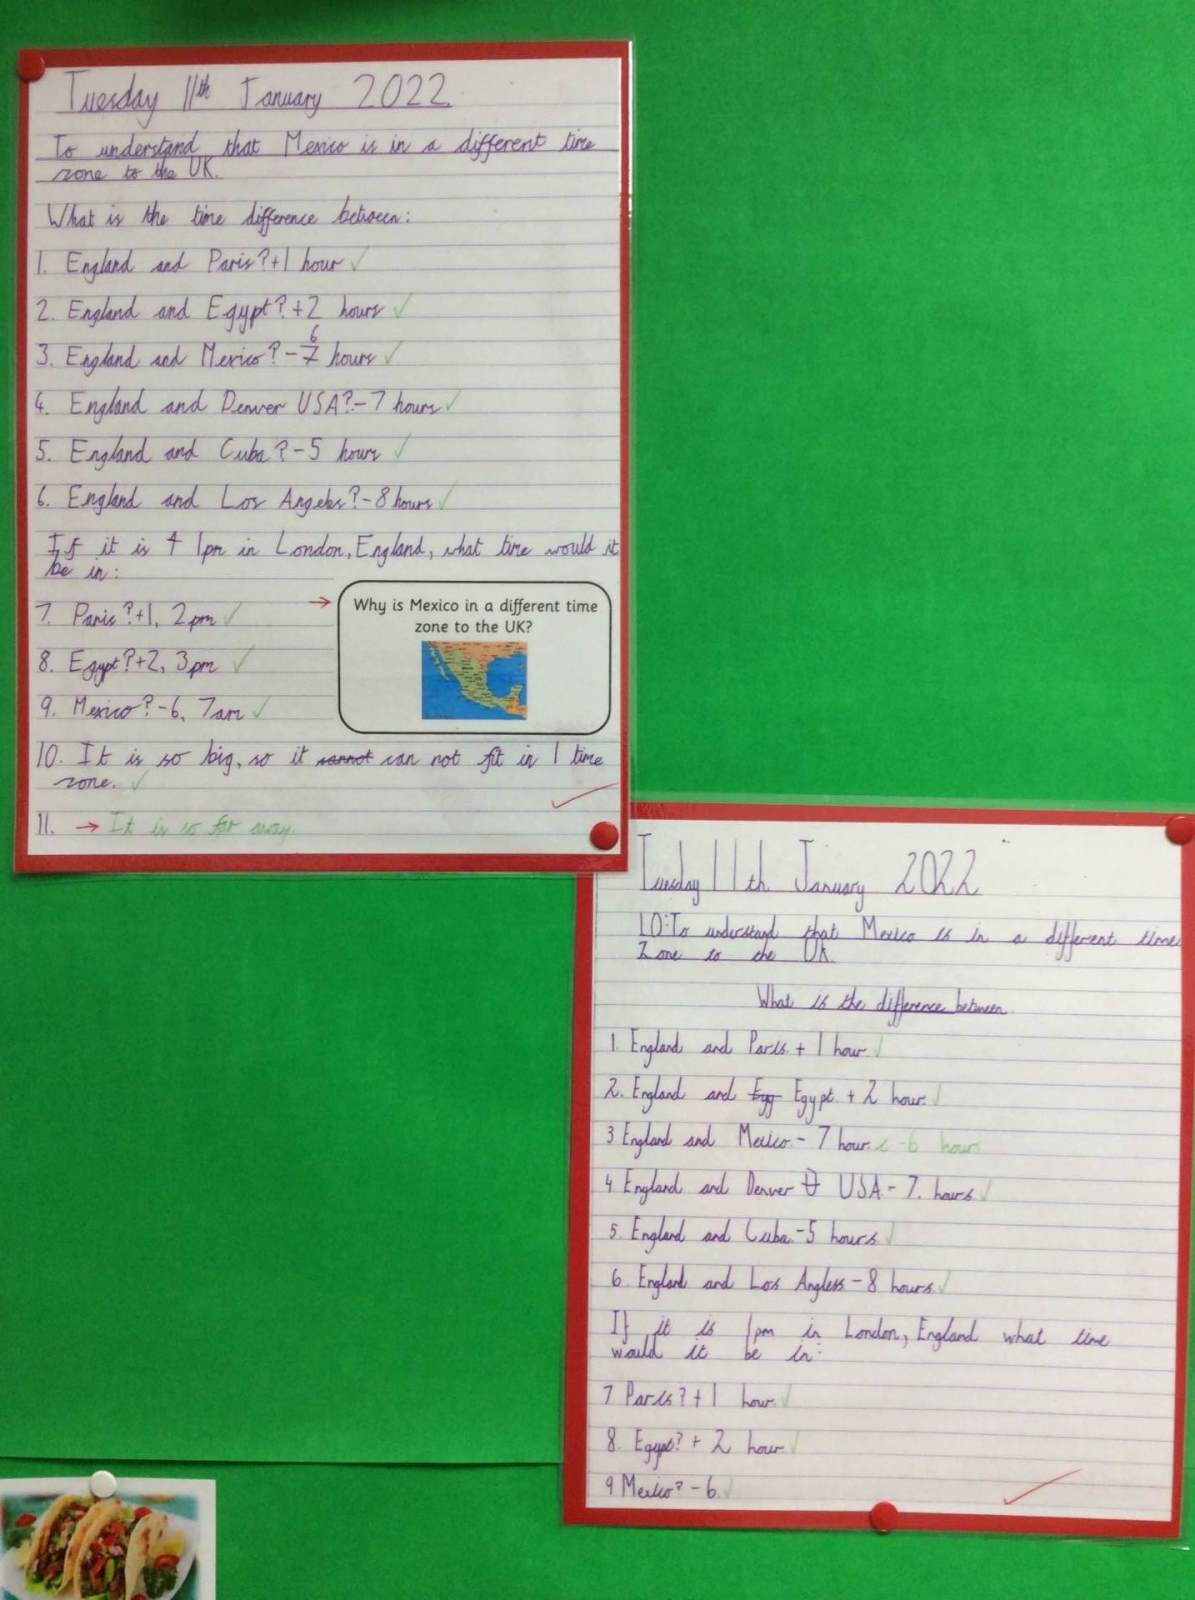 Tuesday 11th January 2022
To understand that Mexico is in a different time
zone to the UK.
What is the time difference between:
1. England and Paris? +1 hour ✓
2. England and Egypt? +2 hours ✓
6
3. England and Mexico? -7 hours ✓
4. England and Denver USA? -7 hours ✓
5. England and Cuba? -5 hours ✓
6. England and Los Angeles? -8 hours ✓
If it is 1pm in London, England, what time would it
be in:
7. Paris? +1, 2pm ✓
8. Egypt? +2, 3pm ✓
9. Mexico? -6, 7am ✓
→ Why is Mexico in a different time
zone to the UK?
10. It is so big, so it cannot can not fit in 1 time
zone. ✓
11. → It is so far away.
Tuesday 11th January 2022
LO: To understand that Mexico is in a different time
zone to the UK
What is the difference between
1. England and Paris + 1 hour ✓
2. England and Egy Egypt + 2 hour ✓
3 England and Mexico - 7 hour -6 hours
4 England and Denver U USA - 7. hours ✓
5. England and Cuba. -5 hours ✓
6. England and Los Angless - 8 hours ✓
If it is 1pm in London, England what time
would it be in:
7 Paris? +1 hour ✓
8. Egypt? + 2 hour ✓
9 Mexico? - 6. ✓